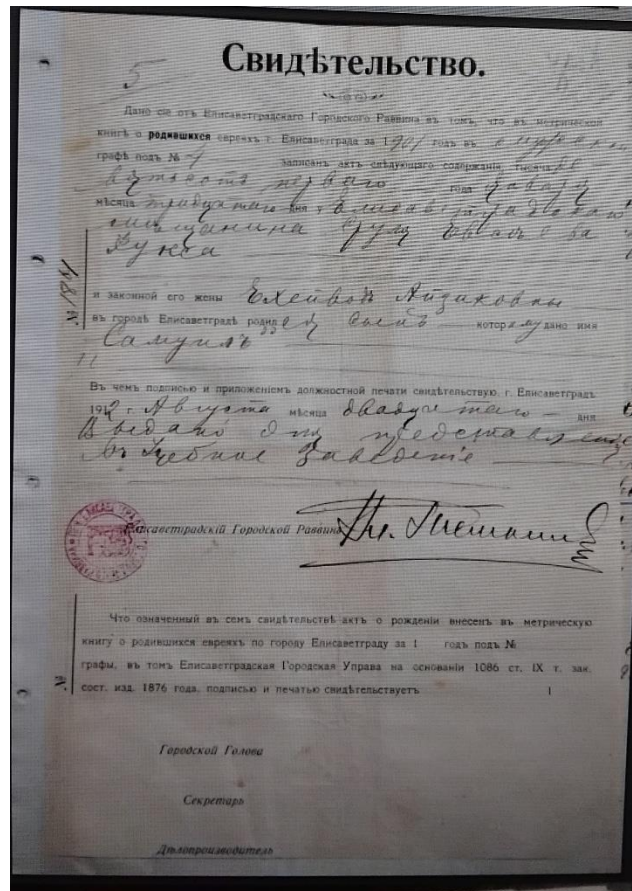 5
Свидѣтельство.
Дано сіе отъ Елисаветградскаго Городского Раввина въ томъ, что въ метрической
книгѣ о родившихся евреяхъ г. Елисаветграда за 1901 годъ въ мужской
графѣ подъ № записанъ актъ слѣдующаго содержанія: тысяча
девятьсотъ перваго года января
мѣсяца тридцатаго дня у Елисаветградскаго
мѣщанина Сруля
Фукса
№ 1841
и законной его жены Айзиковны
въ городѣ Елисаветградѣ родился сынъ которому дано имя
Самуилъ
Въ чемъ подписью и приложеніемъ должностной печати свидѣтельствую, г. Елисаветградъ
191 г. Августа мѣсяца двадцатаго дня
Выдано для представленія
въ Учебное Заведеніе
Елисаветградскій Городской Раввинъ
Что означенный въ семъ свидѣтельствѣ актъ о рожденіи внесенъ въ метрическую
книгу о родившихся евреяхъ по городу Елисаветграду за 1 годъ подъ №
графы, въ томъ Елисаветградская Городская Управа на основаніи 1086 ст. IX т. зак.
сост. изд. 1876 года, подписью и печатью свидѣтельствуетъ 1
№
Городской Голова
Секретарь
Дѣлопроизводитель